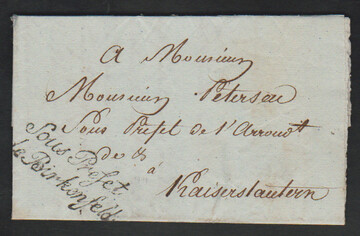 A Monsieur
Monsieur Petersen
Sous Prefet de l'Arrondt
de &
à
Kaiserslautern
Sous Prefet
de Birkenfeld